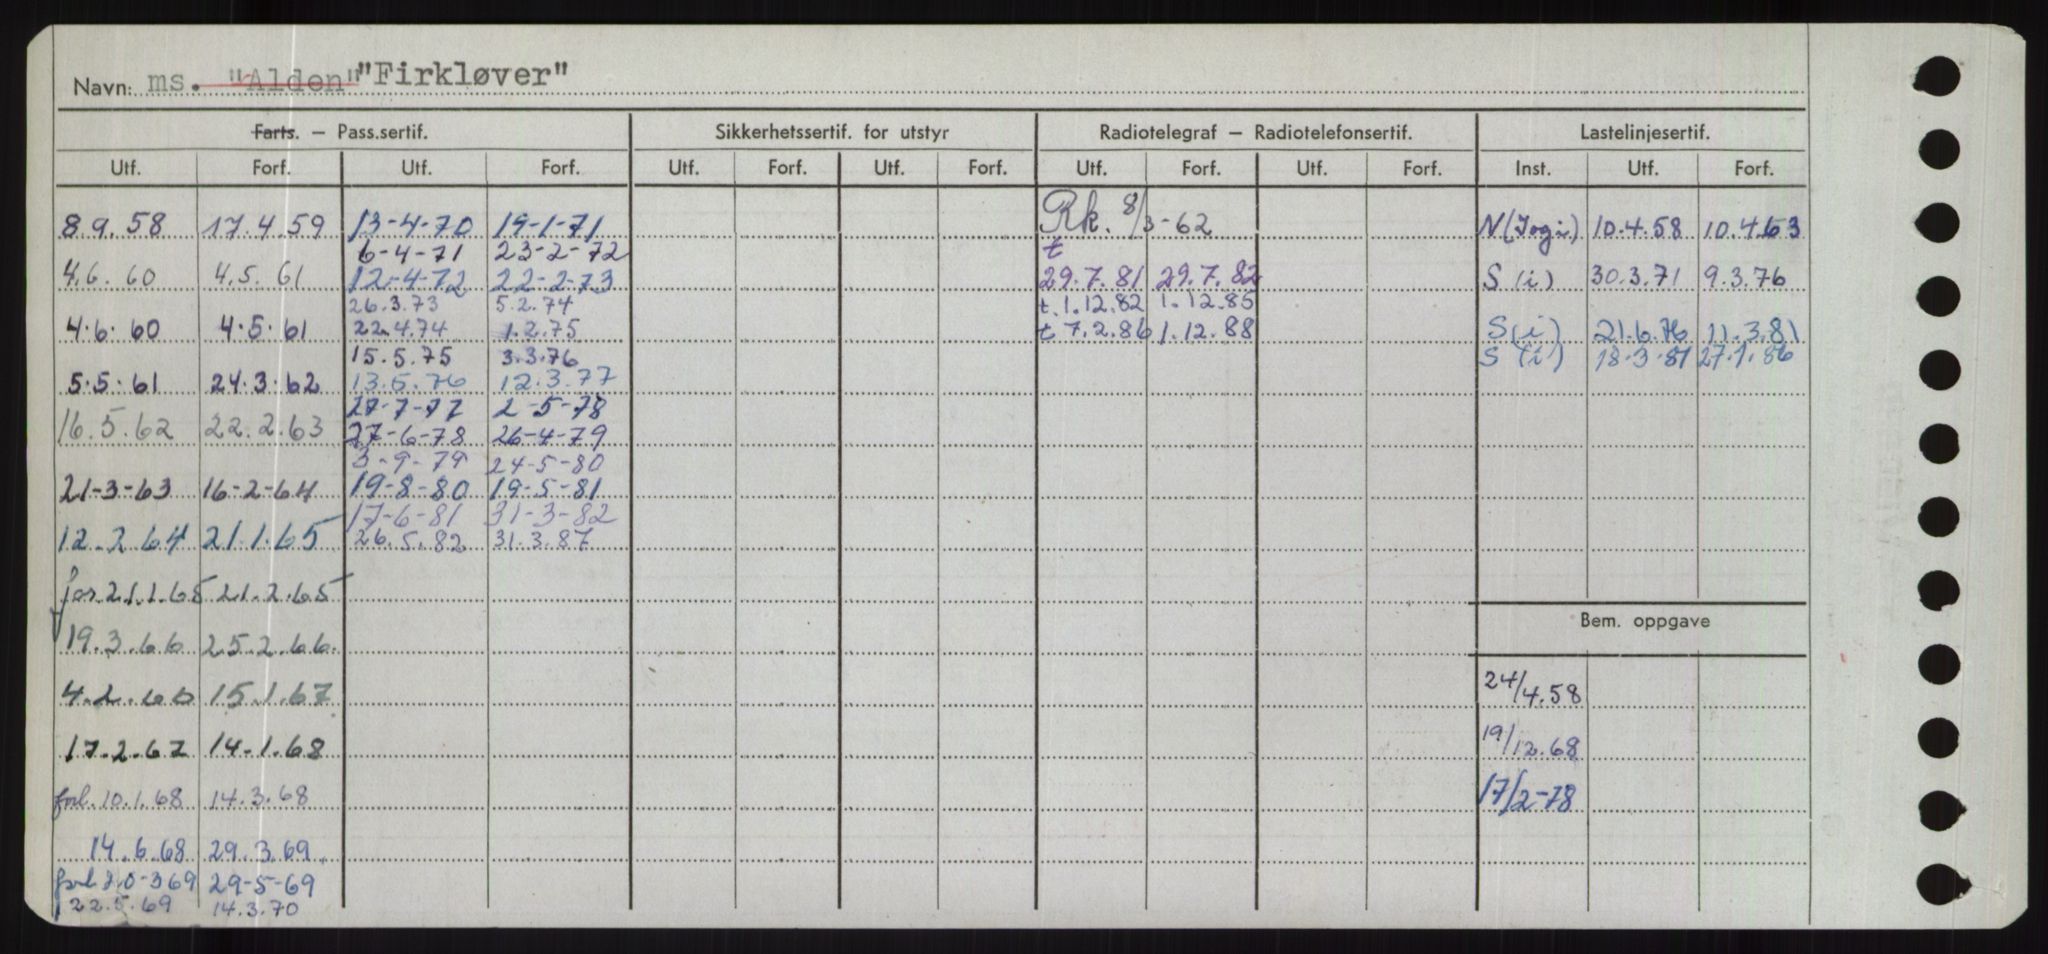 Navn: ms. "Alden" "Firkløver"
Farts. – Pass.sertif. Sikkerhetssertif. for utstyr Radiotelegraf – Radiotelefonsertif. Lastelinjesertif.
Utf. Forf. Utf. Forf. Utf. Forf. Utf. Forf. Utf. Forf. Utf. Forf. Inst. Utf. Forf.
8.9.58 17.4.59 13-4-70 19-1-71 Rk. 8/3-62 N(Jogi) 10.4.58 10.4.63
6-4-71 23-2-72 t
4.6.60 4.5.61 12-4-72 22-2-73 29.7.81 29.7.82 S (i) 30.3.71 9.3.76
26.3.73 5.2.74 t.1.12.82 1.12.85
4.6.60 4.5.61 22.4.74 1.2.75 t 7.2.86 1.12.88 S (i) 21.6.76 11.3.81
15.5.75 3.3.76 S (i) 18-3-81 27.1.86
5.5.61 24.3.62 13.5.76 12.3.77
27-7-77 2-5-78
16.5.62 22.2.63 27-6-78 26-4-79
3-9-79 24-5-80
21-3-63 16-2-64 19-8-80 19-5-81
17-6-81 31-3-82
12.2.64 21.1.65 26.5.82 31.3.87
for.21.1.65 21.2.65
Bem. oppgave
19.3.66 25.2.66.
4.2.66 15.1.67 24/4.58
17.2.67 14-1.68 19/12.68
forl.10.1.68 14.3.68 17/2-78
14.6.68 29.3.69
forl 20-369 29-5-69
22.5.69 14.3.70